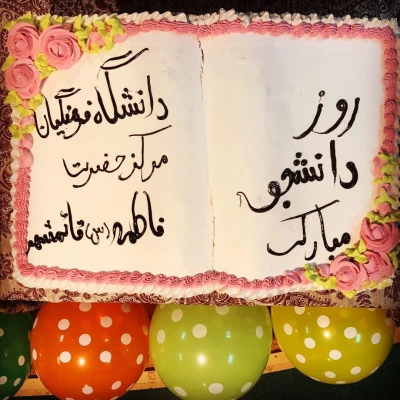 روز
دانشجو
مبارک
دانشگاه فرهنگیان
مرکز حضرت
فاطمه (س) قائمشهر